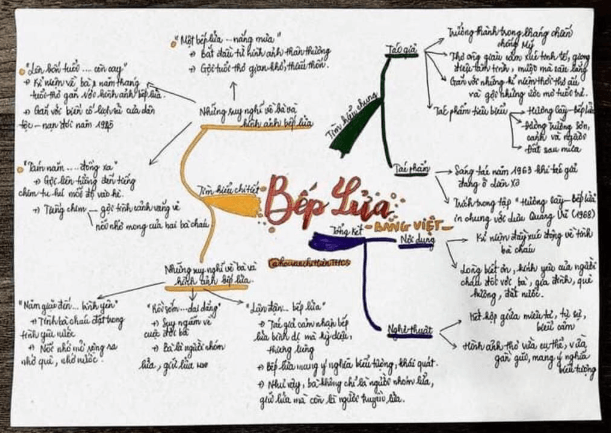 Bếp Lửa
- BẰNG VIỆT -
Tìm hiểu chung
Tác giả
Trưởng thành trong kháng chiến
chống Mỹ
Thơ ông giàu cảm xúc tinh tế, giọng
điệu tâm tình, mượt mà sâu lắng
Gắn với những kỉ niệm thời thơ ấu
và gợi những ước mơ tuổi trẻ.
Tác phẩm tiêu biểu
Hương cây - Bếp lửa
Đường Trường Sơn,
cảnh và người
Đất sau mưa
Tác phẩm
Sáng tác năm 1963 khi tác giả
đang ở Liên Xô
Trích trong tập "Hương cây - Bếp lửa"
in chung với Lưu Quang Vũ (1968)
Tìm hiểu chi tiết
Những suy nghĩ về bà và
hình ảnh bếp lửa
"Một bếp lửa ... nắng mưa"
→ Bắt đầu từ hình ảnh thân thương
→ Gợi tuổi thơ gian khổ, thiếu thốn.
"Lên bốn tuổi .... còn cay"
→ Kỉ niệm về bà & năm tháng
tuổi thơ gắn với hình ảnh bếp lửa.
→ Gắn với biến cố lịch sử của dân
tộc - nạn đói năm 1945
"Tám năm .... đồng xa"
→ Gợi liên tưởng đến tiếng
chim tu hú
→ Tiếng chim - gợi tình cảnh vắng vẻ
nhớ mong của hai bà cháu
Những suy nghĩ về bà và
hình ảnh bếp lửa.
"Năm giặc đốt ... bình yên"
→ Tình bà cháu đặt trong
tình yêu nước
→ Nỗi nhớ mở rộng ra
nhớ quê, nhớ nước.
"Rồi sớm ... dai dẳng"
→ Suy ngẫm về
cuộc đời bà
→ Bà là người nhóm
lửa, giữ lửa
"Lận đận ... bếp lửa"
→ Tác giả cảm nhận bếp
lửa bình dị mà kỳ diệu,
thiêng liêng
→ Bếp lửa mang ý nghĩa biểu tượng, khái quát.
→ Như vậy, bà không chỉ là người nhóm lửa,
giữ lửa mà còn là người truyền lửa.
Tổng kết
Nội dung
Kỉ niệm đầy xúc động về tình
bà cháu
Lòng biết ơn, kính yêu của người
cháu đối với bà, gia đình, quê
hương, đất nước.
Nghệ thuật
Kết hợp giữa miêu tả, tự sự,
biểu cảm
Hình ảnh thơ vừa cụ thể, vừa
gần gũi, mang ý nghĩa
biểu tượng